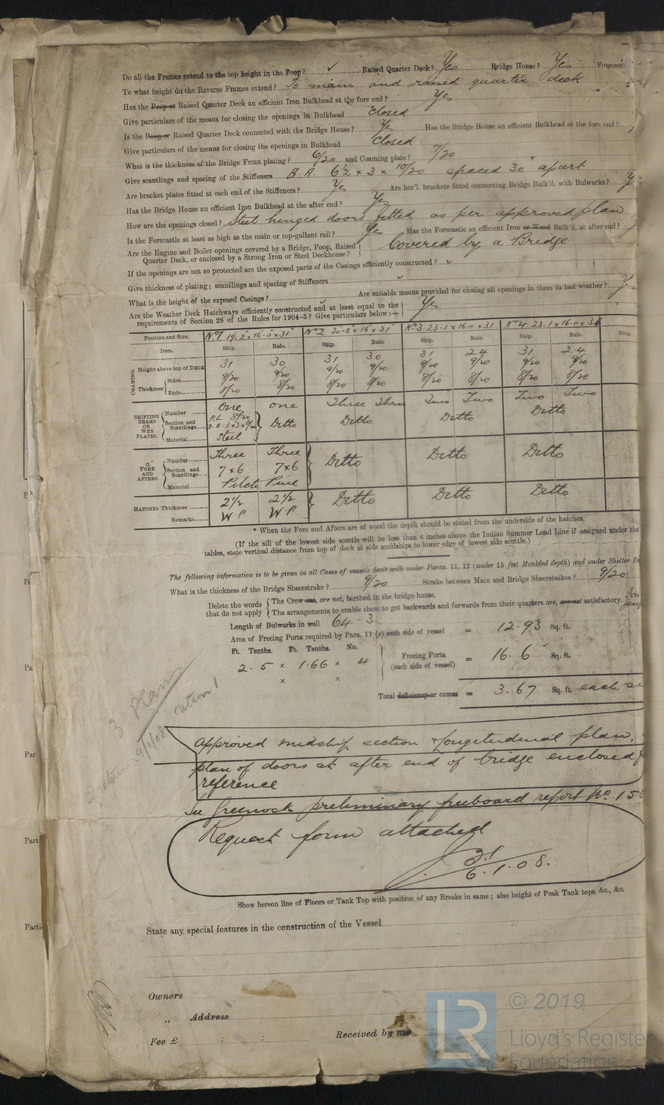 Do all the Frames extend to the top height in the Poop? ✓ Raised Quarter Deck? Yes Bridge House? Yes Forecas
To what height do the Reverse Frames extend? To main and raised quarter deck
Has the Poop or Raised Quarter Deck an efficient Iron Bulkhead at the fore end? Yes
Give particulars of the means for closing the openings in Bulkhead Closed
Is the Poop or Raised Quarter Deck connected with the Bridge House? Yes Has the Bridge House an efficient Bulkhead at the fore end?
Give particulars of the means for closing the openings in Bulkhead Closed
What is the thickness of the Bridge Front plating? 6/20 and Coaming plate? 7/20
Give scantlings and spacing of the Stiffeners B.A. 6½ × 3 × 10/20 spaced 30" apart
Are bracket plates fitted at each end of the Stiffeners? Yes Are hor'l. brackets fitted connecting Bridge Bulk'd. with Bulwarks? Y
Has the Bridge House an efficient Iron Bulkhead at the after end? Yes
How are the openings closed? Steel hinged doors fitted as per approved plan
Is the Forecastle at least as high as the main or top-gallant rail? Yes Has the Forecastle an efficient Iron or Wood Bulk'd, at after end?
Are the Engine and Boiler openings covered by a Bridge, Poop, Raised
Quarter Deck, or enclosed by a Strong Iron or Steel Deckhouse? Covered by a Bridge
If the openings are not so protected are the exposed parts of the Casings efficiently constructed? ✓
Give thickness of plating; scantlings and spacing of Stiffeners
What is the height of the exposed Casings? Are suitable means provided for closing all openings in them in bad weather? Y
Are the Weather Deck Hatchways efficiently constructed and at least equal to the
requirements of Section 28 of the Rules for 1904-5? Give particulars below:— Yes
Position and Size. No 1 19.2 × 16.0 × 31" No 2 30.8 × 16 × 31" No 3 23.1 × 16.0 × 31 No 4 23.1 × 16.0 × 31
Item. Ship. Rule. Ship. Rule. Ship. Rule. Ship. Rule. Ship.
COAMING.
Height above top of Deck 31 30 31 30 31 24 31 24
Thickness Sides 9/20 9/20 9/20 9/20 9/20 9/20 9/20 9/20
Ends 8/20 8/20 8/20 8/20 8/20 8/20 8/20 8/20
SHIFTING BEAMS OR WEB PLATES.
Number One One Three Three Two Two Two Two
Section and Scantlings Ditto Ditto Ditto Ditto
Material Steel
FORE AND AFTERS.
Number Three Three Ditto Ditto Ditto
Section and Scantlings 7×6 7×6
Material Pitch Pine
HATCHES Thickness 2½ 2½ Ditto Ditto Ditto
Remarks W P W P
* When the Fore and Afters are of wood the depth should be stated from the underside of the hatches.
(If the sill of the lowest side scuttle will be less than 6 inches above the Indian Summer Load Line if assigned under the
tables, state vertical distance from top of deck at side amidships to lower edge of lowest side scuttle.)
The following information is to be given in all Cases of vessels dealt with under Paras. 11, 12 (under 15 feet Moulded depth) and under Shelter D
What is the thickness of the Bridge Sheerstrake? 9/20 Strake between Main and Bridge Sheerstrakes? 9/20
Delete the words The Crew are, are not, berthed in the bridge house.
that do not apply The arrangements to enable them to get backwards and forwards from their quarters are, are not satisfactory.
Length of Bulwarks in well 64.3
Area of Freeing Ports required by Para. 11 (e) each side of vessel = 12.93 Sq. ft.
Ft. Tenths. Ft. Tenths. No.
2.5 × 1.66 × 4 Freeing Ports (each side of vessel) = 16.6 Sq. ft.
× ×
Total deficiency or excess = 3.67 Sq. ft. each si
3 Plans
return 1
9/1/08
Approved midship section & longitudinal plan,
plan of doors at after end of bridge enclosed
reference
In Greenock preliminary freeboard report No. 15
Request form attached
6.1.08.
Show hereon line of Floors or Tank Top with position of any Breaks in same; also height of Peak Tank tops, &c., &c.
State any special features in the construction of the Vessel
Owners
„ Address
Fee £ : : Received by me
LR © 2019
Lloyd's Registe
Foundation
Par
Part
Partic